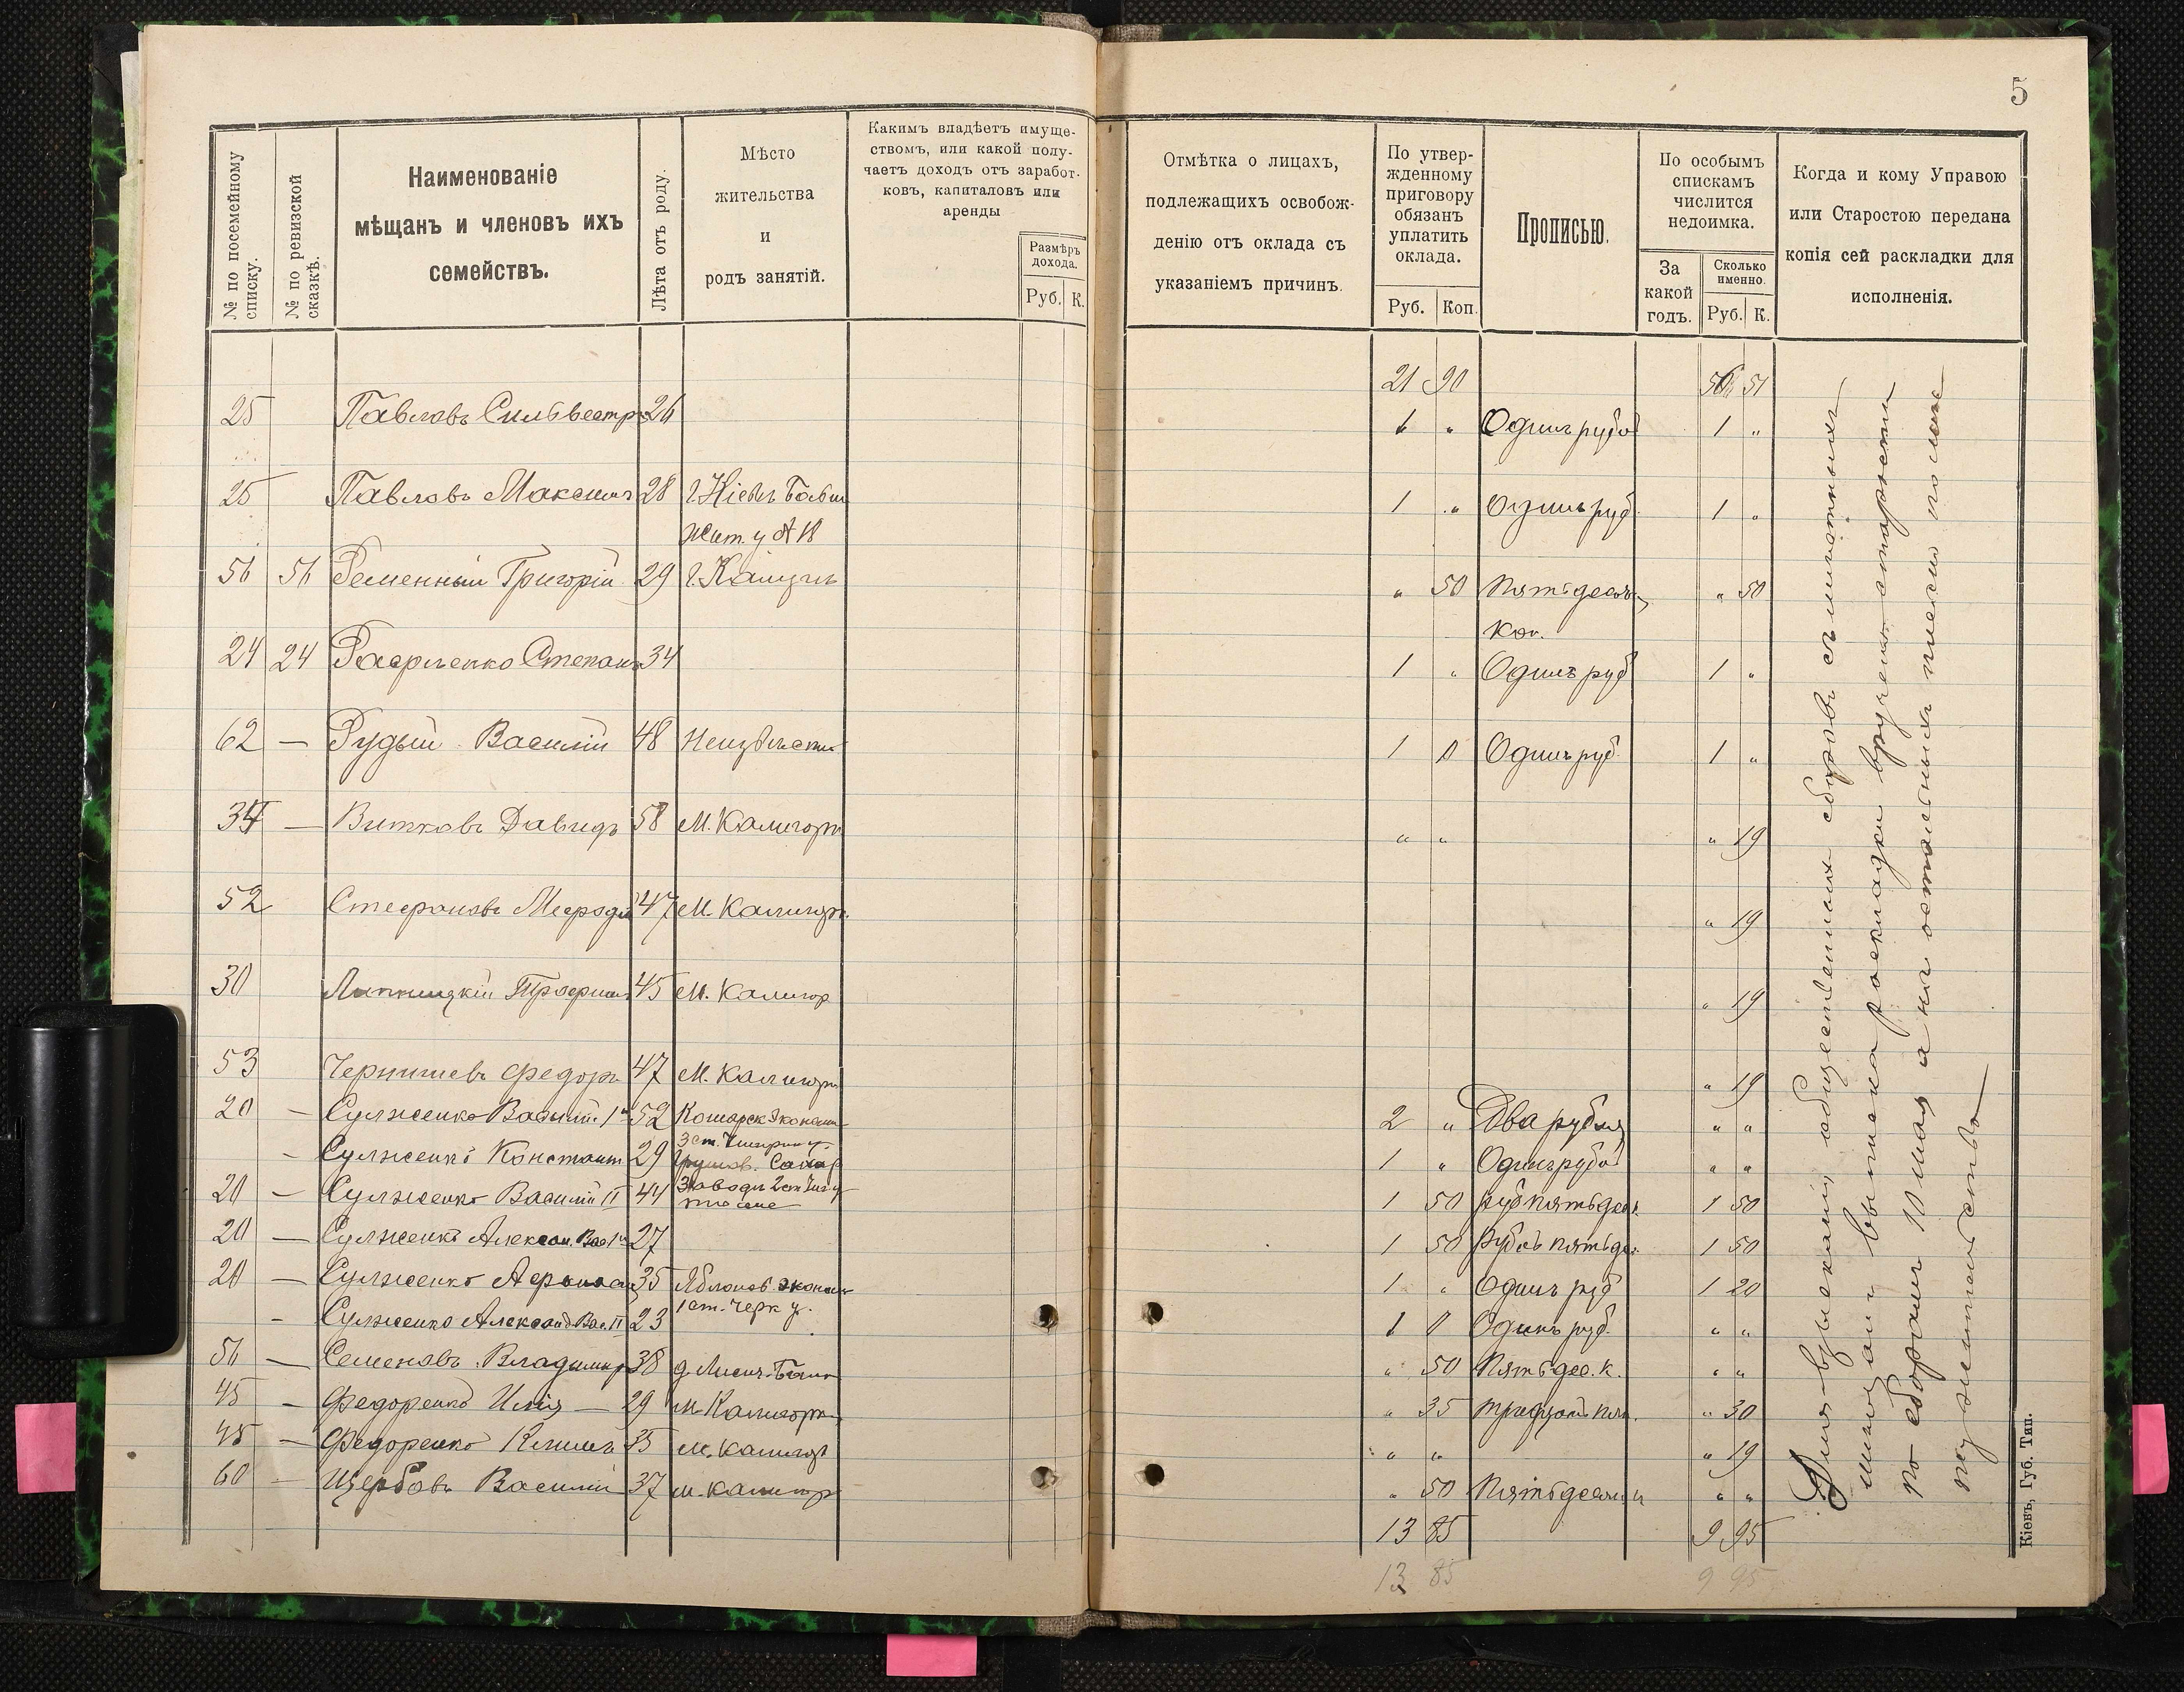 5
№ по посемейному списку.
№ по ревизской сказкѣ.
Наименованіе
мѣщанъ и членовъ ихъ
семействъ.
Лѣта отъ роду.
Мѣсто
жительства
и
родъ занятій.
Какимъ владѣетъ имуще-
ствомъ, или какой полу-
чаетъ доходъ отъ заработ-
ковъ, капиталовъ или
аренды
Размѣръ
дохода.
Руб. К.
Отмѣтка о лицахъ,
подлежащихъ освобож-
денію отъ оклада съ
указаніемъ причинъ.
По утвер-
жденному
приговору
обязанъ
уплатить
оклада.
Руб. Коп.
Прописью.
По особымъ
спискамъ
числится
недоимка.
За
какой
годъ.
Сколько
именно.
Руб. К.
Когда и кому Управою
или Старостою передана
копія сей раскладки для
исполненія.
21 90 51
25 Павловъ Сильвестръ 26 1 " Одинъ рубль 1 "
25 Павловъ Максимъ 28 г. Кіевъ 1 " Одинъ руб. 1 "
56 56 Ременный Григорій 29 " 50 Пятьдесят " 50
коп.
24 24 Степанъ 34 1 " Одинъ руб 1 "
62 — Рудый Василій 48 Неизвѣстно 1 " Одинъ руб. 1 "
34 — Витковъ Давидъ 58 М. Калигорк " " " 19
52 Стефановъ Мефодій 47 М. Калигорк. " 19
30 Трофимъ 45 М. Калигор " 19
53 Чернишевъ Федоръ 47 М. Калигорк " 19
20 — Сулженко Василій 1й 52 2 " Два рубля " "
— Сулженко Констант 29 1 " Одинъ рубль " "
20 — Сулженко Василій II 44 1 50 руб пятьдес. 1 50
20 — Сулженко Алексан. Вас 1й 27 1 50 Рубль пятьдес. 1 50
20 — Сулженко Афанасій 35 Яблонов. эконом 1 " Одинъ руб 1 20
1 ст. Черк у.
- Сулженко Александ Вас. II 23 1 " Одинъ руб. " "
56 — Семеновъ Владимиръ 38 " 50 Пятьдес. к. " "
45 — Федоренко Илія — 29 м. Калигорк " 35 тридцать пят. " 30
45 — Федоренко Климъ 35 м. Калигор " " " 19
60 — Щербовъ Василій 37 м. Калигор " 50 Пятьдесят к " "
13 85 9 95
13 85 9 95
Для взысканія общественныхъ сборовъ съ
выписка раскладки вручена старости
по сборамъ 10 мая а на остальныхъ
Кіевъ, Губ. Тип.